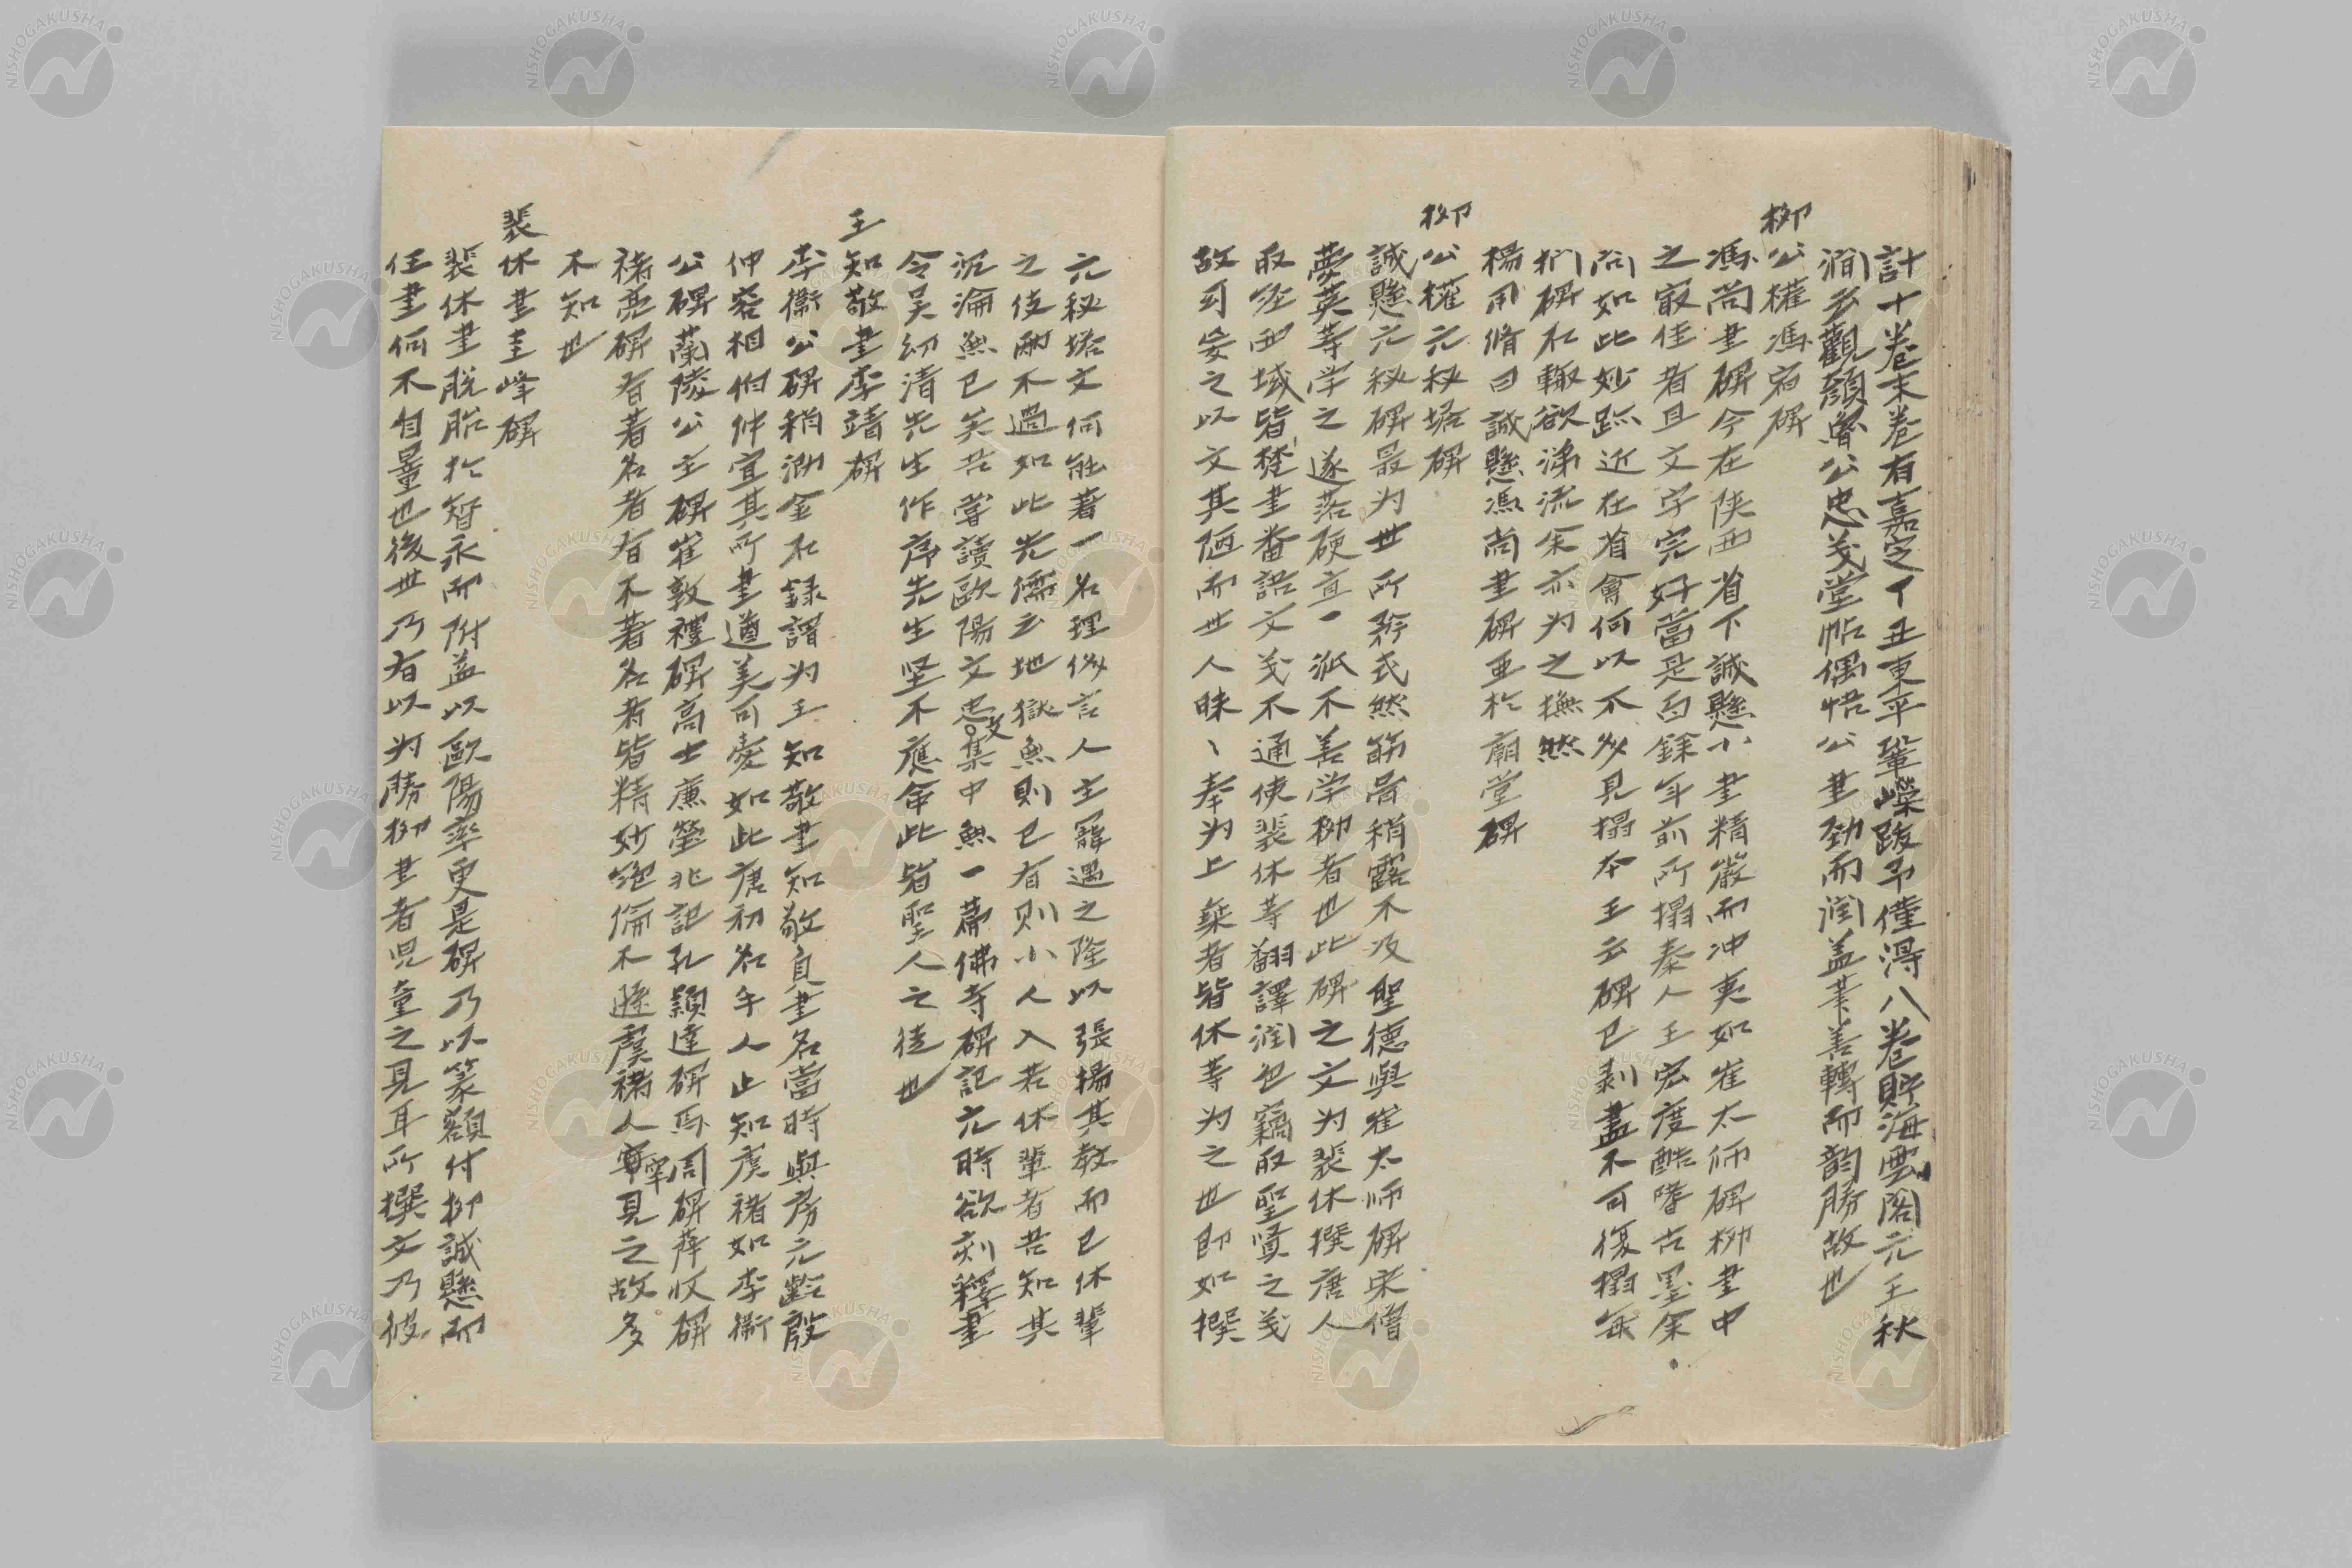 計十卷末卷有嘉定丁丑東平鞏嶸跋予僅得八卷貯海雲閣元王秋
澗多觀顏魯公忠義堂帖偶悟公書勁而潤蓋筆善轉而韵勝故也
柳公權馮宿碑
馮尚書碑今在陝西省下誠懸小書精嚴而冲夷如崔太師碑柳書中
之寂佳者且文字完好當是百餘年前所搨秦人王宏度酷嗜古墨余
問如此妙跡近在省會何以不多見搨本王云碑已剥盡不可復搨每
捫碑石輙欲涕流余亦为之撫然
楊用脩曰誠懸馮尚書碑亜於廟堂碑
柳公權元秘塔碑
誠懸元秘碑最为世所矜式然筋骨稍露不及聖德與崔太师碑宋僧
夢英等学之遂落硬直一派不善学柳者也此碑之文为裴休撰唐人
取经西域皆梵書番語文义不通使裴休等翻譯润色竊取聖賢之义
故可妄之以文其陋而世人昧丶奉为上乗者皆休等为之也即如撰
元秘塔文何能著一名理紛言人主寵遇之隆以張揚其教而已休輩
之伎倆不過如此先儒云地獄無則已有則小人入若休輩者吾知其
沉淪無已矣吾嘗讀歐陽文忠文集中無一篇佛寺碑記元時欲刻釋書
令吴幼清先生作序先生坚不應命此皆聖人之徒也
王知敬書李靖碑
李衛公碑稍泐金石録謂为王知敬書知敬負書名當時與房元齡殷
仲容相伯仲宜其所書遒美可愛如此唐初名手人止知虞褚如李衛
公碑蘭陵公主碑崔敦禮碑高士廉塋兆記孔穎達碑馬周碑薛收碑
褚亮碑有著名者有不著名者皆精妙绝倫不遜虞褚人罕見之故多
不知也
裴休書圭峰碑
裴休書脱胎於智永而附益以歐陽率更是碑乃以篆額付柳誠懸而
任書何不自量也後世乃有以为勝柳書者児童之見耳所撰文乃彼